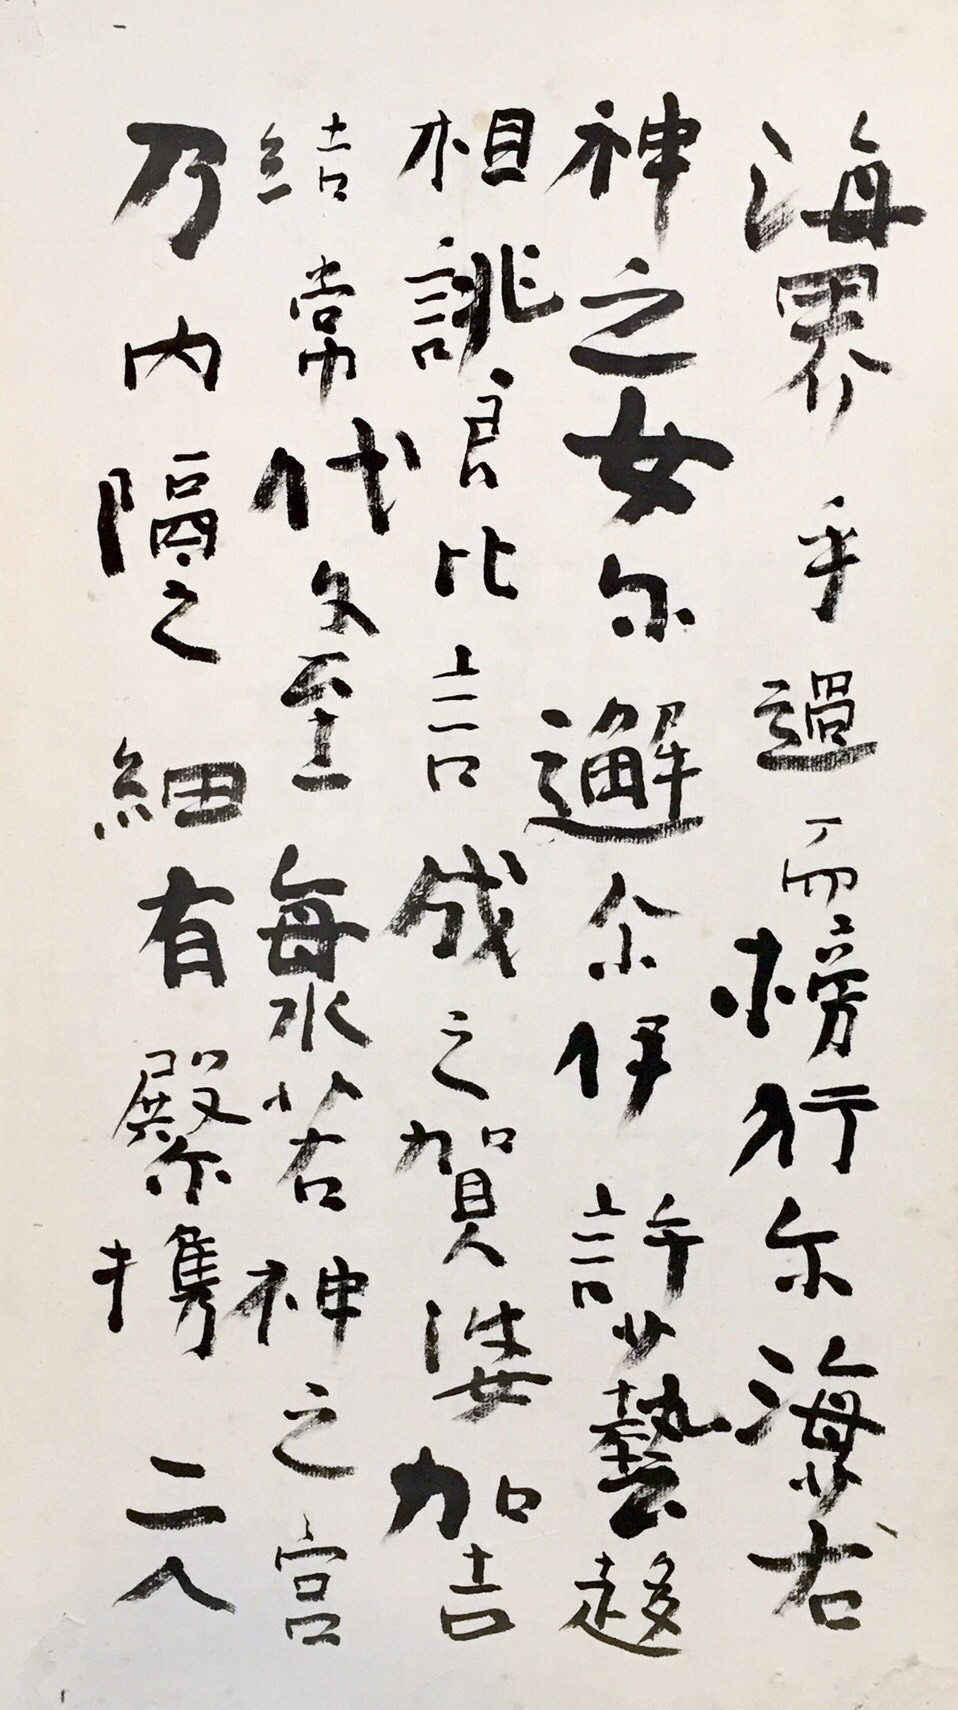 海界乎過而榜行尓海若
神之女尓邂尓伊許藝趍
相誂良比言成之賀婆加吉
結常代尓至海若神之宮
乃内隔之細有殿尓携二人